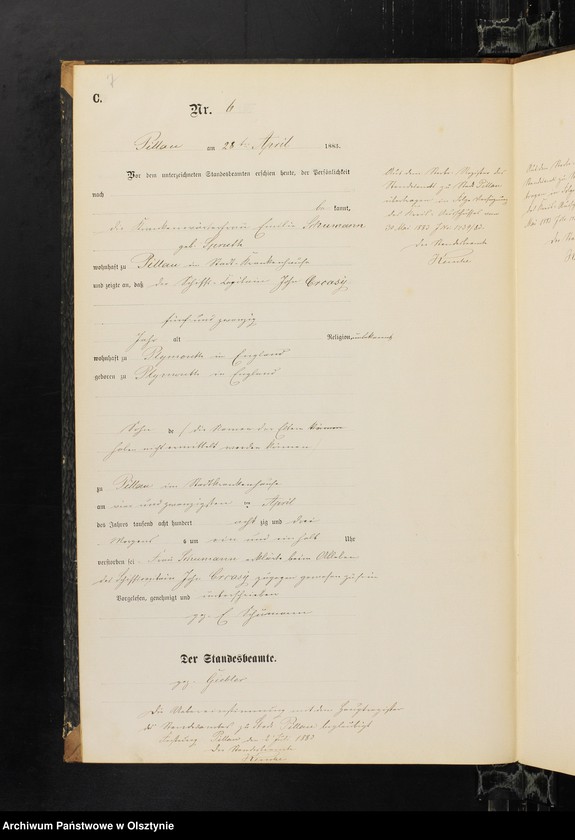 7
C.
Nr. 6
Pillau am 28ten April 1883.
Vor dem unterzeichneten Standesbeamten erschien heute, der Persönlichkeit
nach
be kannt,
die Krankenwärterin Emilie Schumann
geb.
wohnhaft zu Pillau im Stadt-Krankenhause
und zeigte an, daß der Schiffs-Kapitain John Creasy
fünf und zwanzig
Jahr alt Religion, unbekannt
wohnhaft zu Plymouth in England
geboren zu Plymouth in England
Sohn de / die Namen der Eltern
haben nicht ermittelt werden können
zu Pillau im Stadtkrankenhause
am vier und zwanzigsten April
des Jahres tausend acht hundert acht zig und drei
Morgens um ein und ein halb Uhr
verstorben sei. Frau Schumann erklärte beim Ableben
des Schiffskapitain John Creasy zugegen gewesen zu sein
Vorgelesen, genehmigt und unterschrieben
gz. E Schumann
Der Standesbeamte.
gz.
Die Uebereinstimmung mit dem Hauptregister
des Standesamtes zu Stadt Pillau beglaubigt
Pillau den 2 Juli 1883
Der Standesbeamte
Aus dem Sterbe-Register des
Standesamts zu Stadt Pillau
übertragen in Folge Verfügung
des Kreis-Ausschusses vom
30. Mai 1883
Der Standesbeamte
Archiwum Państwowe w Olsztynie